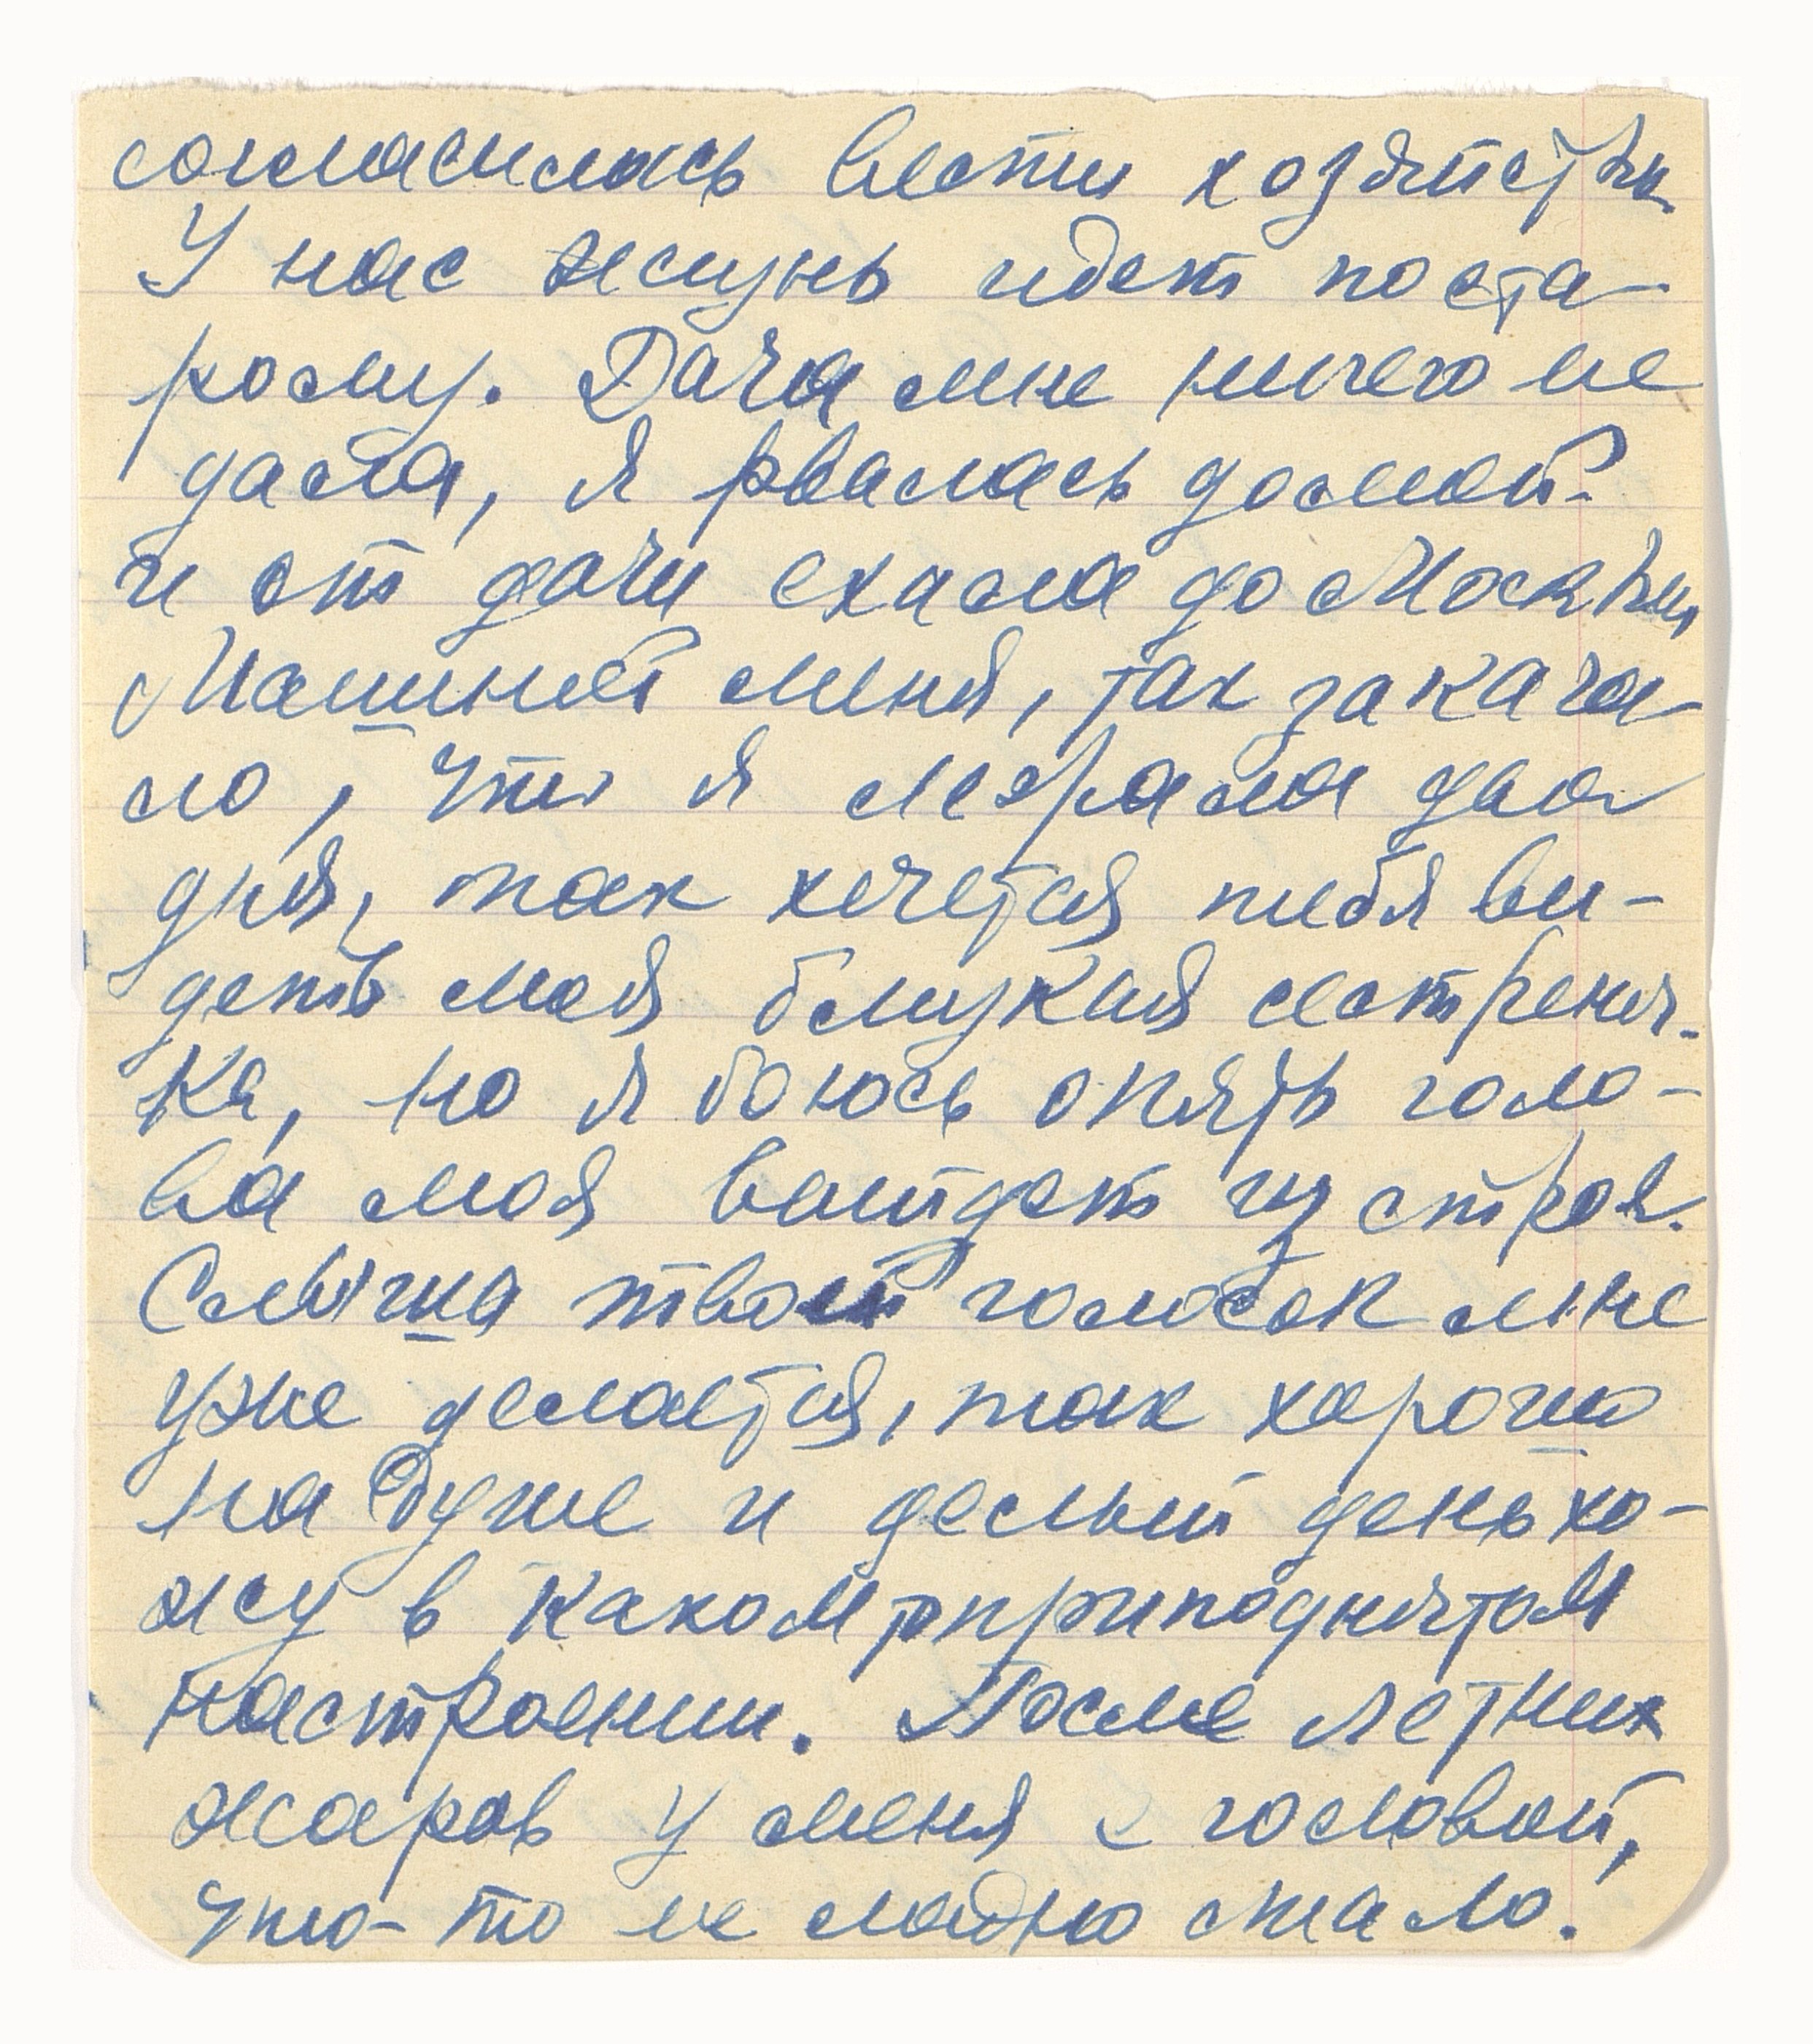 согласилась вести хозяйство.
У нас жизнь идет поста-
рому. Дача мне ничего не
дала, я рвалась домой
и от дачи ехала до Москвы
Машиной меня, так закача-
ло, что я лежала два
дня, так хочется тебя ви-
деть моя близкая сестрень-
ка, но я боюсь опять голо-
ва моя выйдет из строя.
Слыша твой голосок мне
уже делается, так хорошо
на душе и целый день хо-
жу в каком то приподнятом
настроении. После летних
жаров у меня с головой,
что-то не ладно стало.